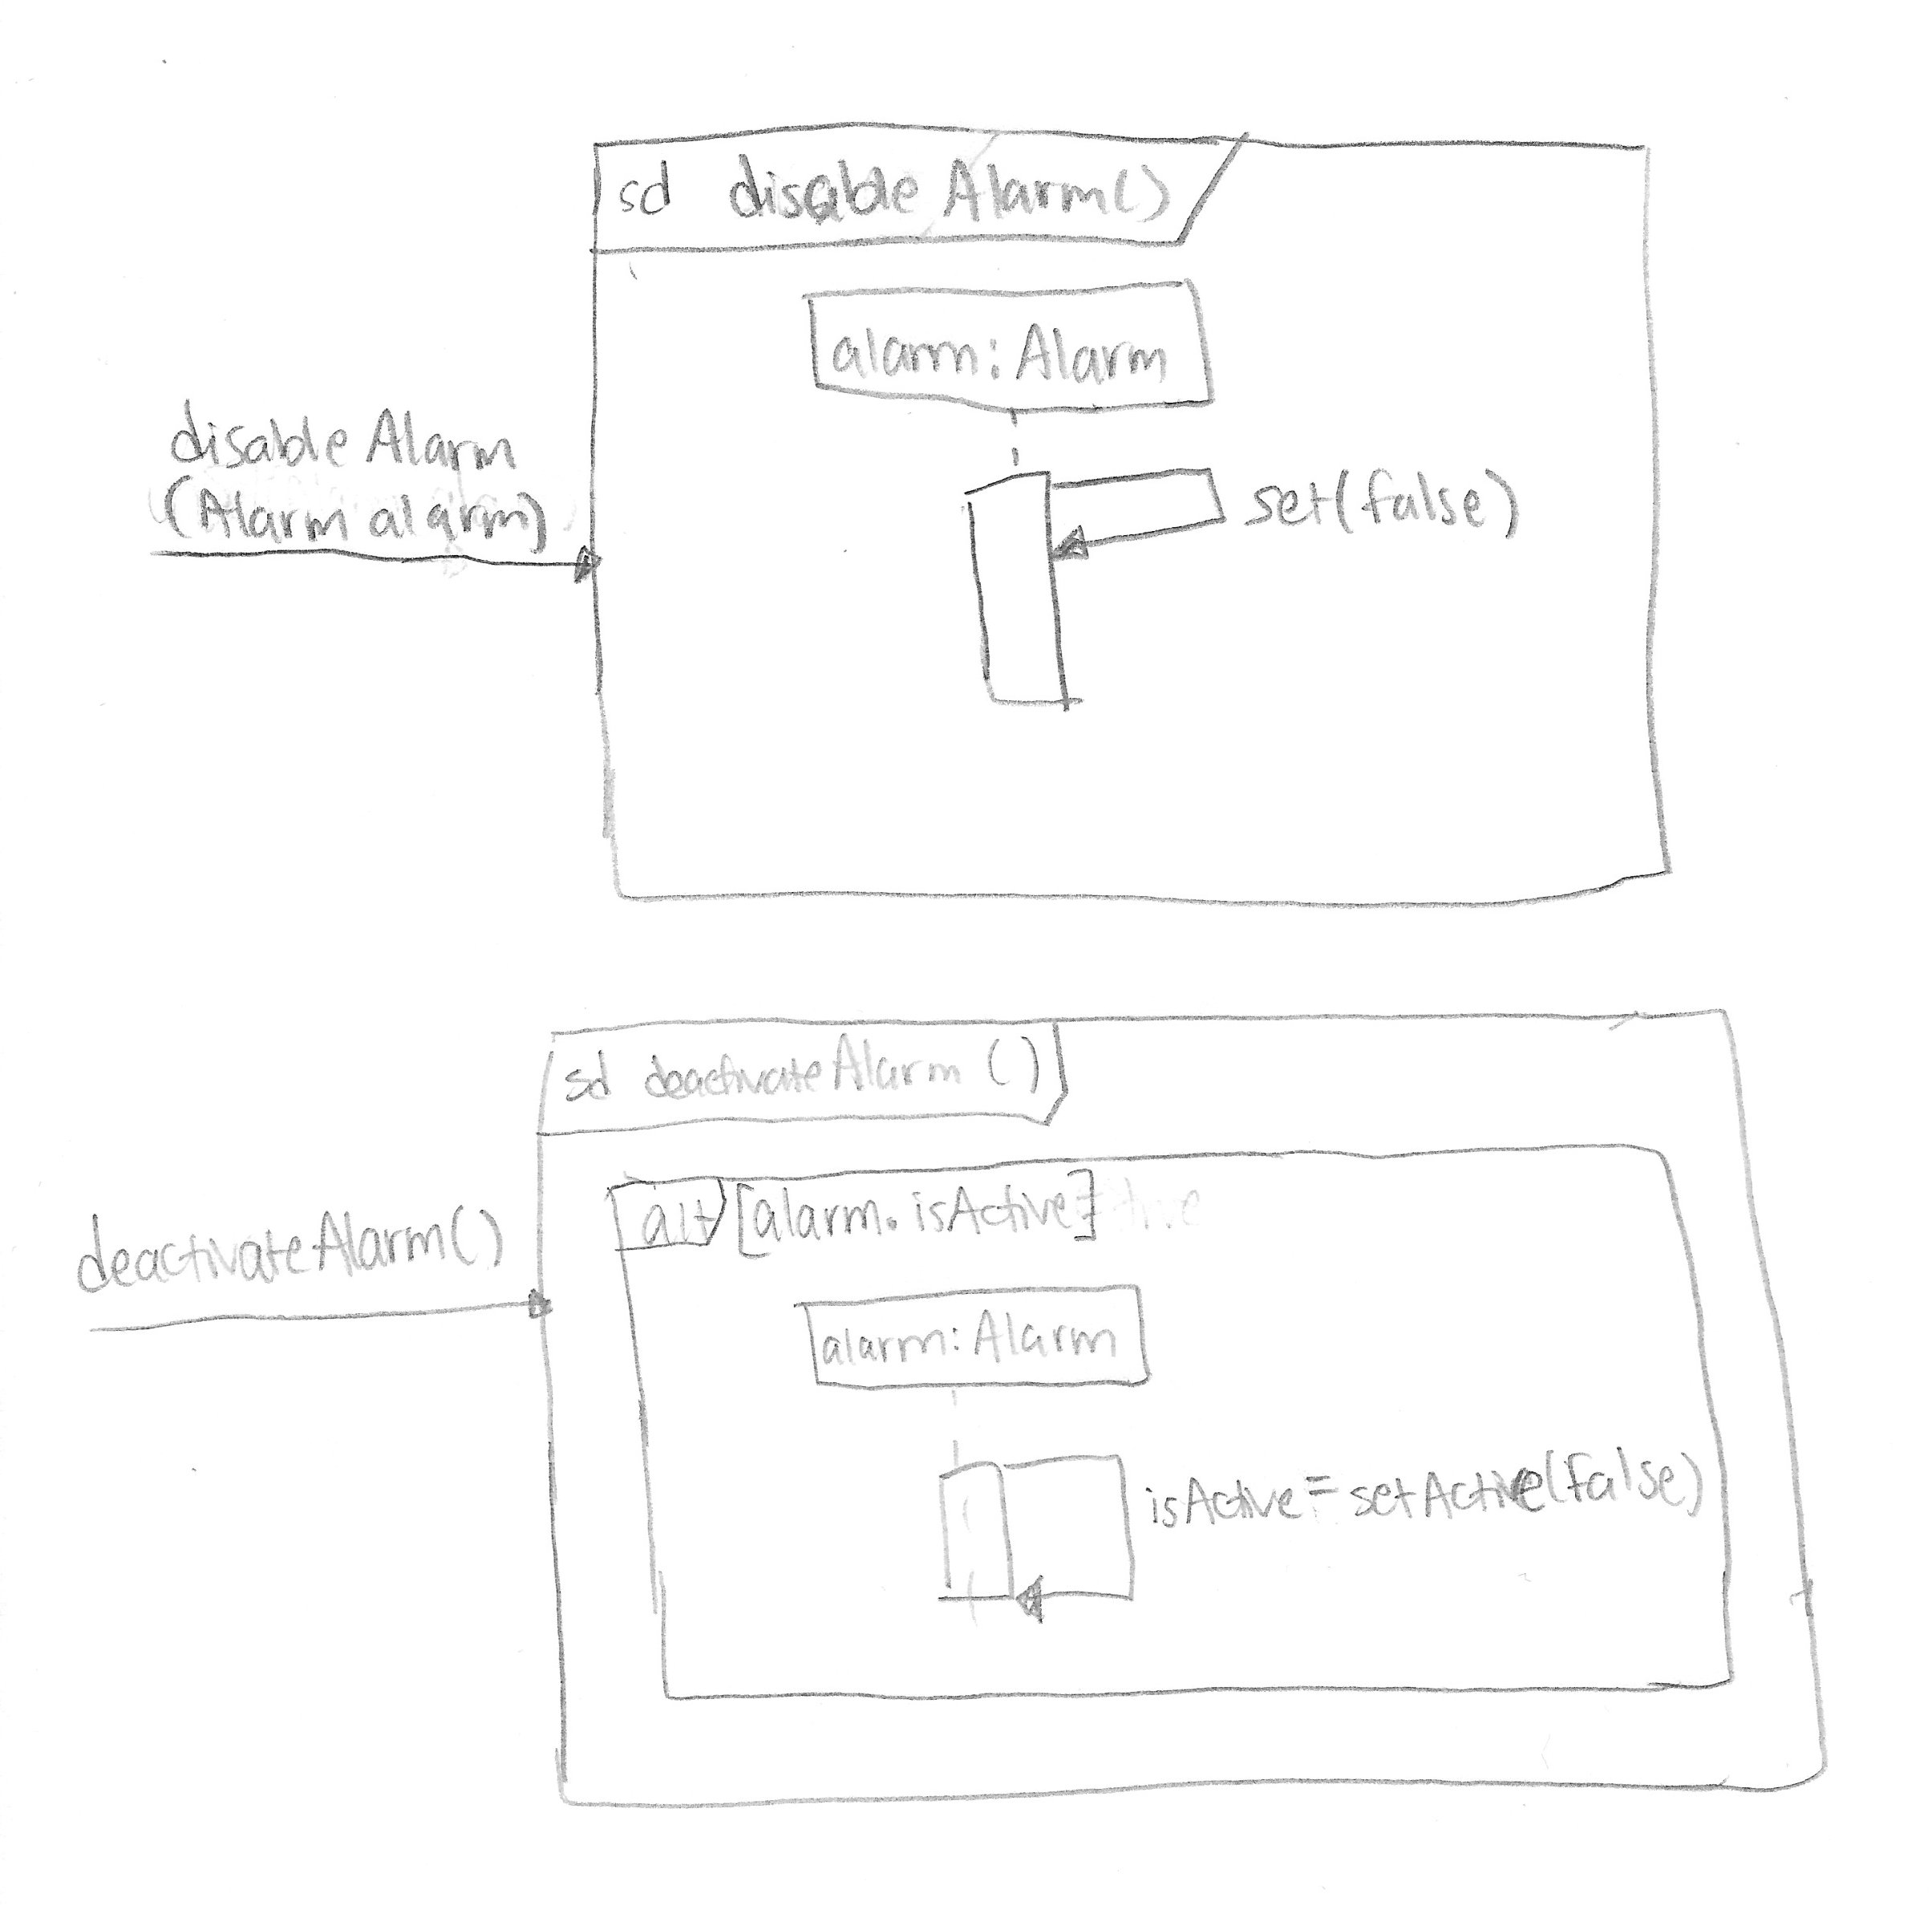 sd disableAlarm()
alarm: Alarm
disableAlarm
(Alarm alarm)
set(false)
sd deactivateAlarm ()
alt [alarm.isActive]
deactivateAlarm()
alarm: Alarm
isActive = setActive(false)